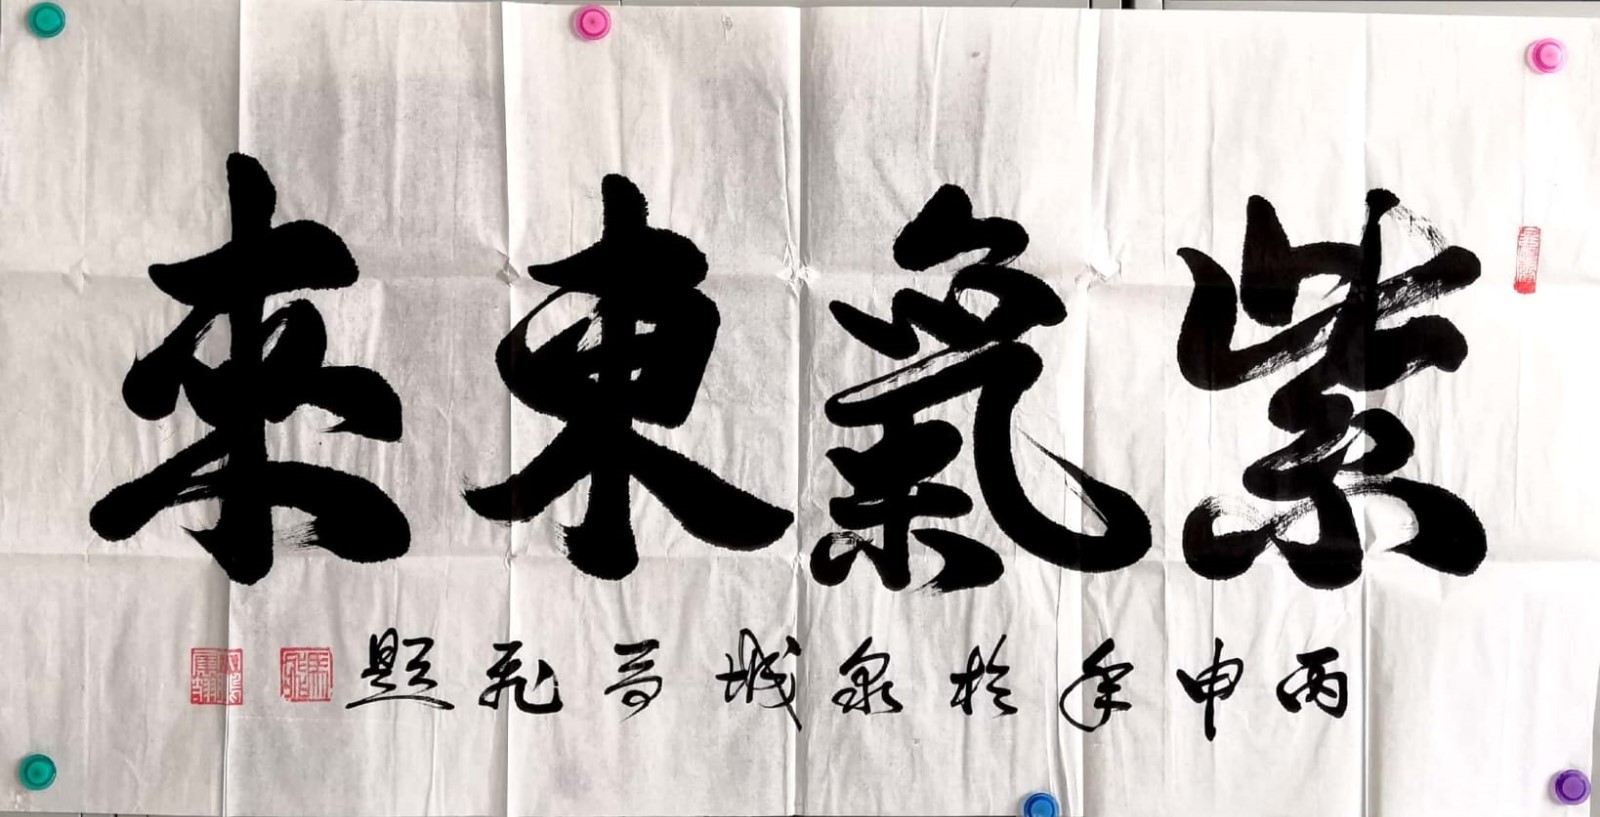 紫氣東來
丙申年於泉城馬飛題